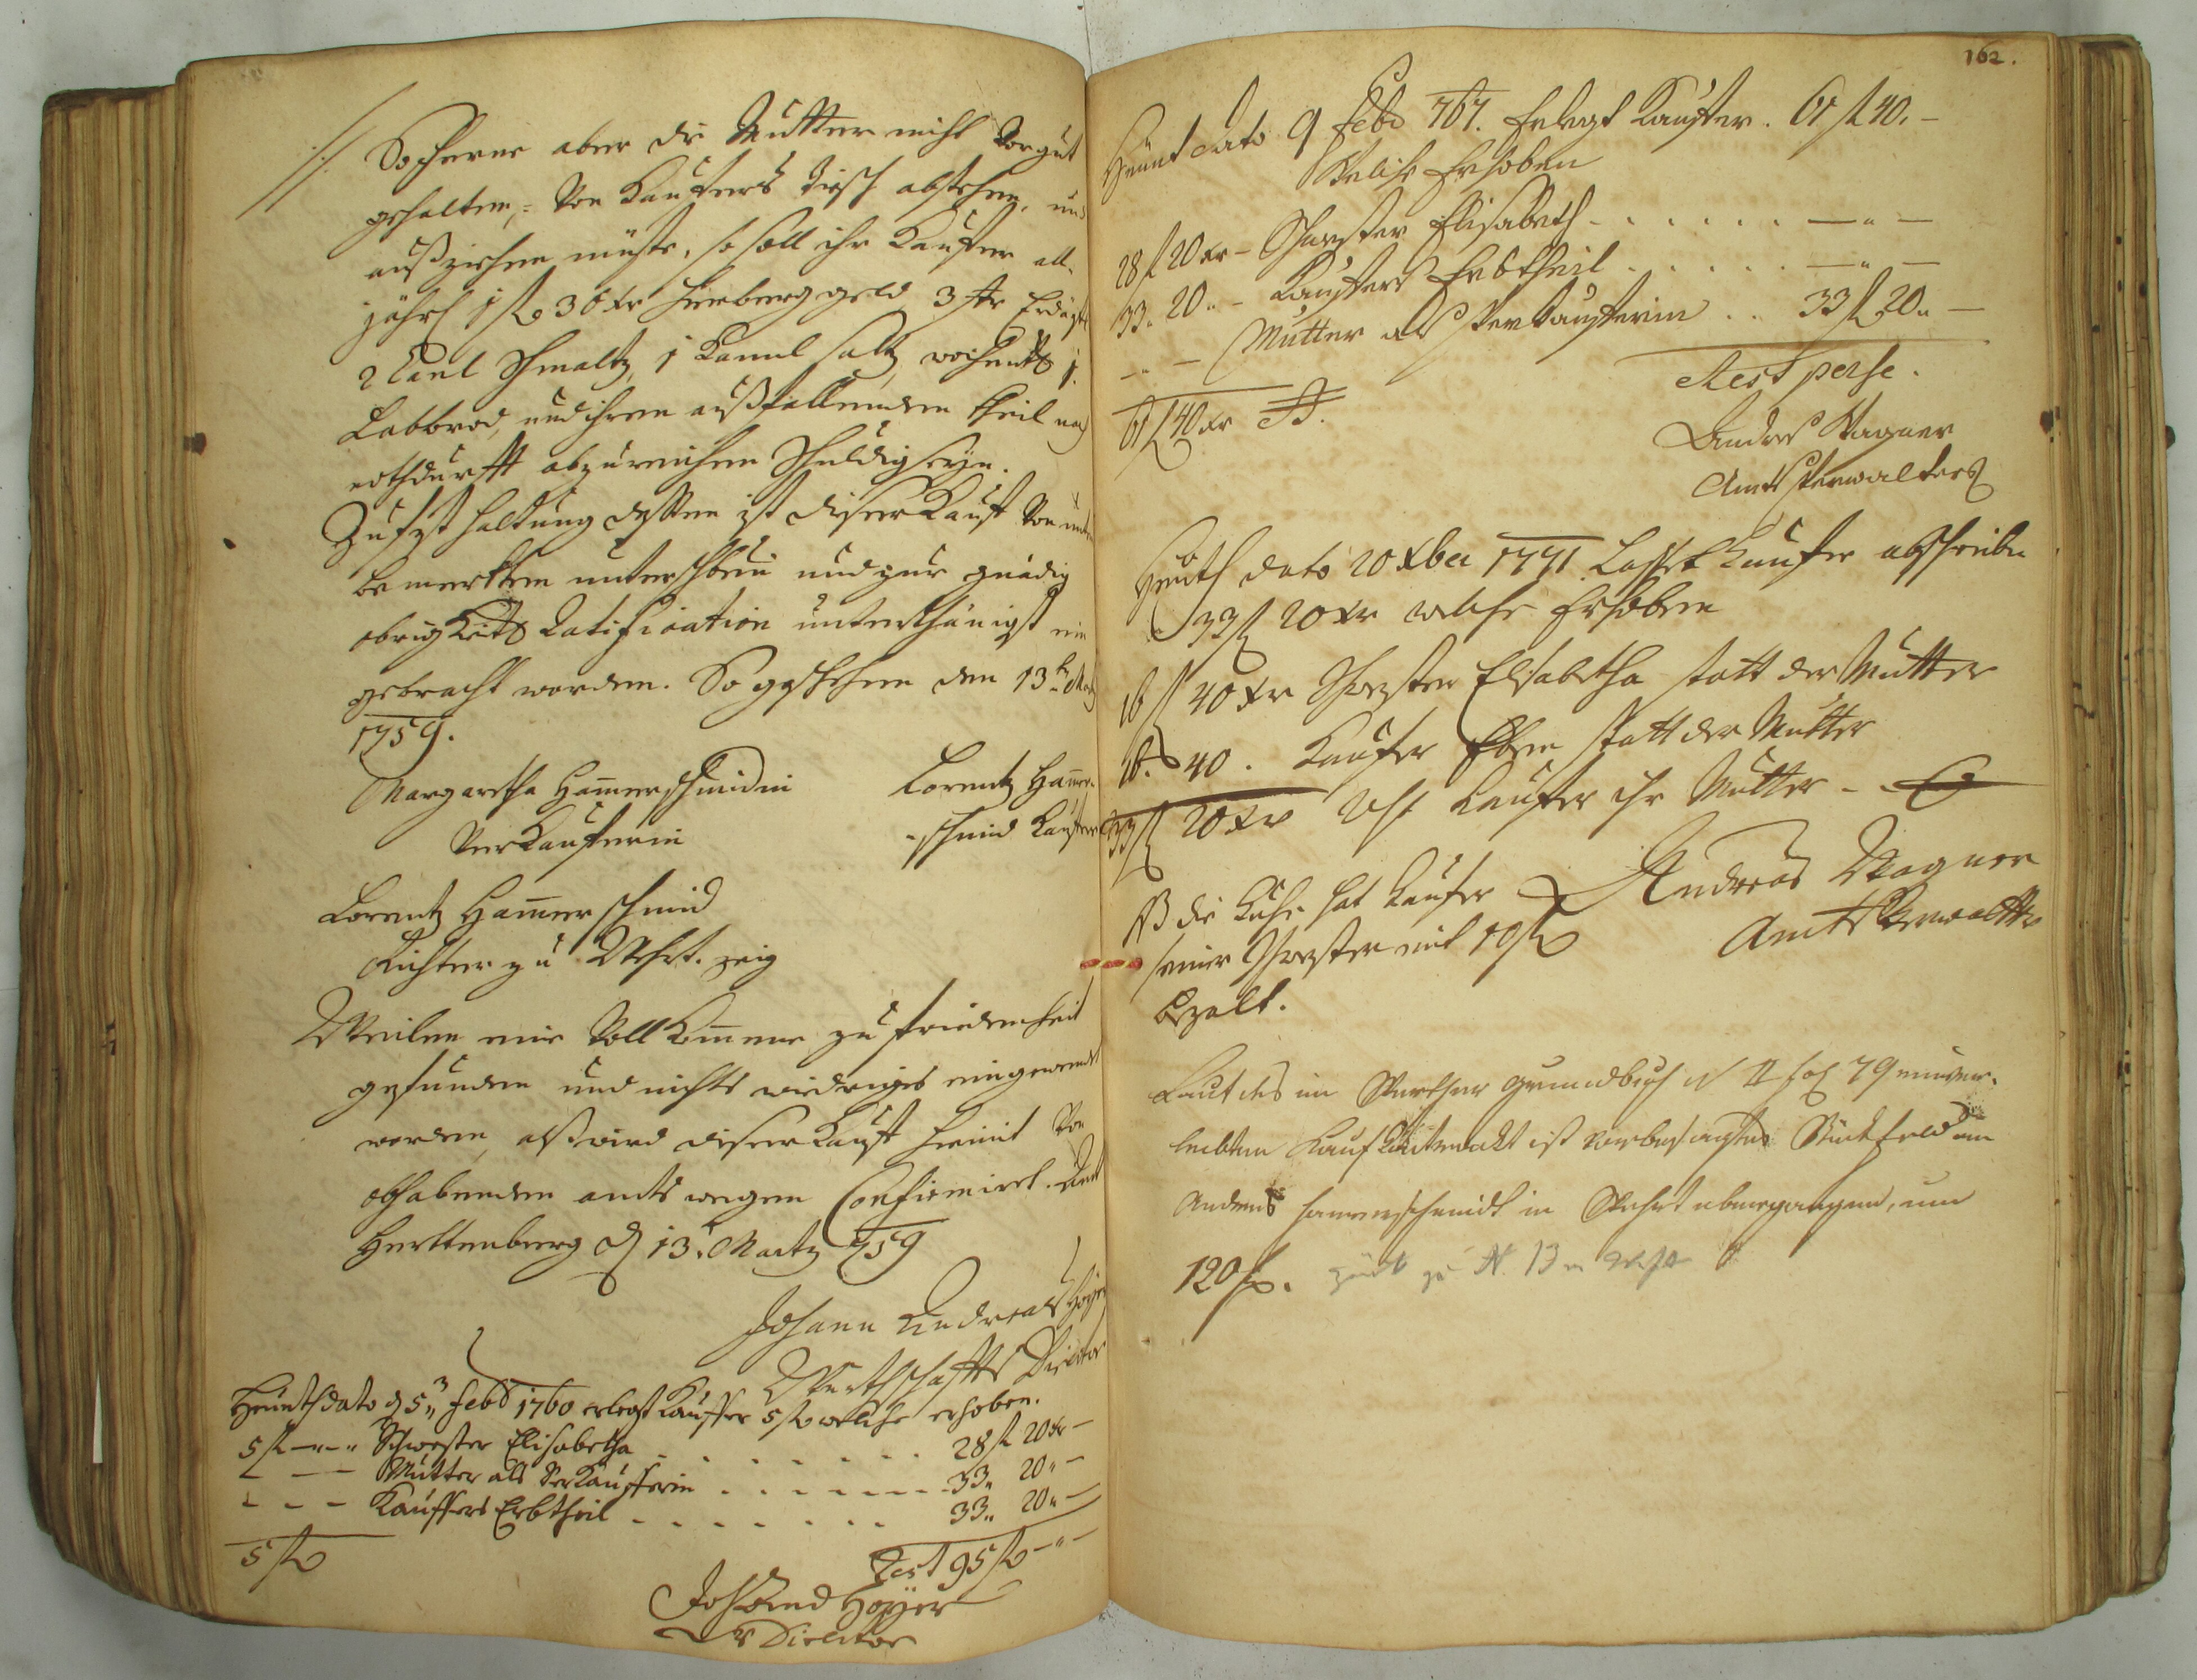 Sopherne aber die Mutter nicht vor gut
gehalten, von Kaufers Tisch abstehen, und
außziehen müste, so soll ihr Kaufer all
jährl 1 fl 30 xr Herberg geld 3 str Erdäpfl
2 Kanl Schmaltz, 1 Kanul saltz, wochentl 1
Labbrod, und ihren außfallenden theil nach
nothdurfft abzureichen schuldig seyn.
Zu fest haltung dessen ist diser Kauf von unten
bemerkten unterschrben und zur gnädig
obrigkeitl Ratification unterthänigst ein
gebracht worden. So geschehen den 13t. Martz
1759.
Margaretha Ham̅erschmidin
Verkauferin
Lorentz Ham̅er-
schmid Kaufer
Lorentz Ham̅erschmid
Richter zu zeig
Weilen eine Vollkom̅ene zufriedenheit
gefunden und nichts widriges eingewendt
worden, alß wird diser Kauf hiemit von
obhabenden amts wegen Confirmirt. Amt
Herttenberg d 13t. Martz 759
Johann Andreas Hoyer
Wirthschaffts Director
Heunt dato d 5ten Feb 1760 erlegt Kauffer 5 fl welche erhoben.
5 fl — „ — Schwester Elisabetha . . . . . . 28 fl 20 xr —
— — Mutter als Verkaufferin . . . . . . 33 „ 20 „ —
— — — Kauffers Erbtheil . . . . . . 33 „ 20 „ —
5 fl
Rest 95 fl — „ —
Joh And Hoyer
Director
162.
Heünt dato 9 Feb 767. Erlegt Kaufer . 61 fl 40. —
Welche Erhoben
28 fl 20 xr — Schwester Elisabeth . . . . . . — „ —
33. 20 „ — Kaufers Erbtheil . . . . . — „ —
— „ — Mutter als Verkaufferin . . 33 fl 20 „ —
61 fl 40 xr
Rest per se.
Andres Wagner
Amts Verwalter
Heuth dato 20 Xber 1771. Lasset Kaufer abschreiben
33 fl 20 xr welche Erhoben
16 fl 40 xr Schwester Elsabetha statt der Mutter
16. 40. Kaufer Eben statt der Mutter
33 fl 20 xr Rest Kaufer ihr Mutter —
NB die Kuhe hat Kaufer
seiner Schwester mit 10 fl
bezalt.
Andreas Wagner
Amts Verwalter
Laut des im Werther Grundbuch N II fol 79 einver-
leibten Kauf Kontrakt ist vorbesagtes Stük Feld an
Andreas Hammerschmidt in übergegangen, um
120 fl. N. 13